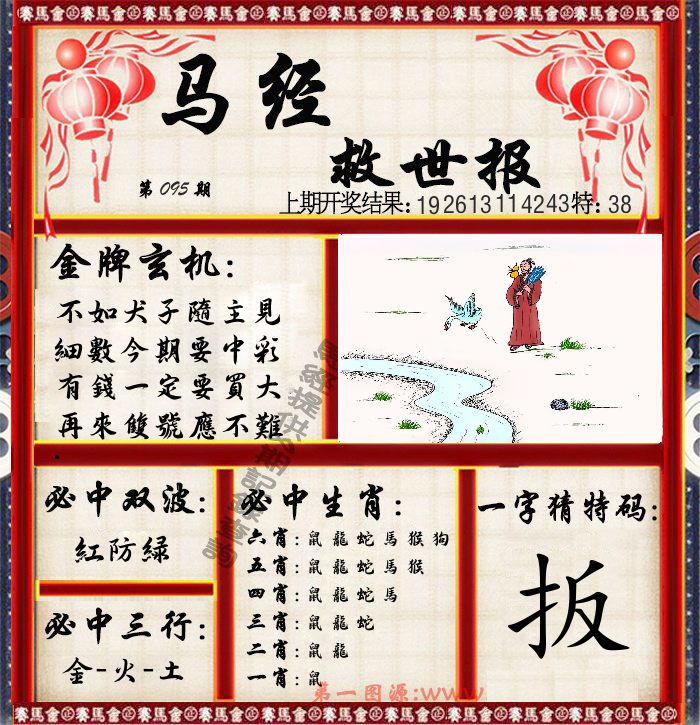 賽馬會 賽馬會 賽馬會 賽馬會 賽馬會 賽馬會 賽馬會 賽馬會 賽馬會 賽馬會
马经
救世报
第095期
上期开奖结果:19 26 13 11 42 43 特:38
金牌玄机:
不如犬子隨主見
細數今期要中彩
有錢一定要買大
再來雙號應不難
必中双波:
紅防緑
必中三行:
金-火-土
必中生肖:
六肖:鼠龍蛇馬猴狗
五肖:鼠龍蛇馬猴
四肖:鼠龍蛇馬
三肖:鼠龍蛇
二肖:鼠龍
一肖:鼠
一字猜特码:
扳
第一图源:www